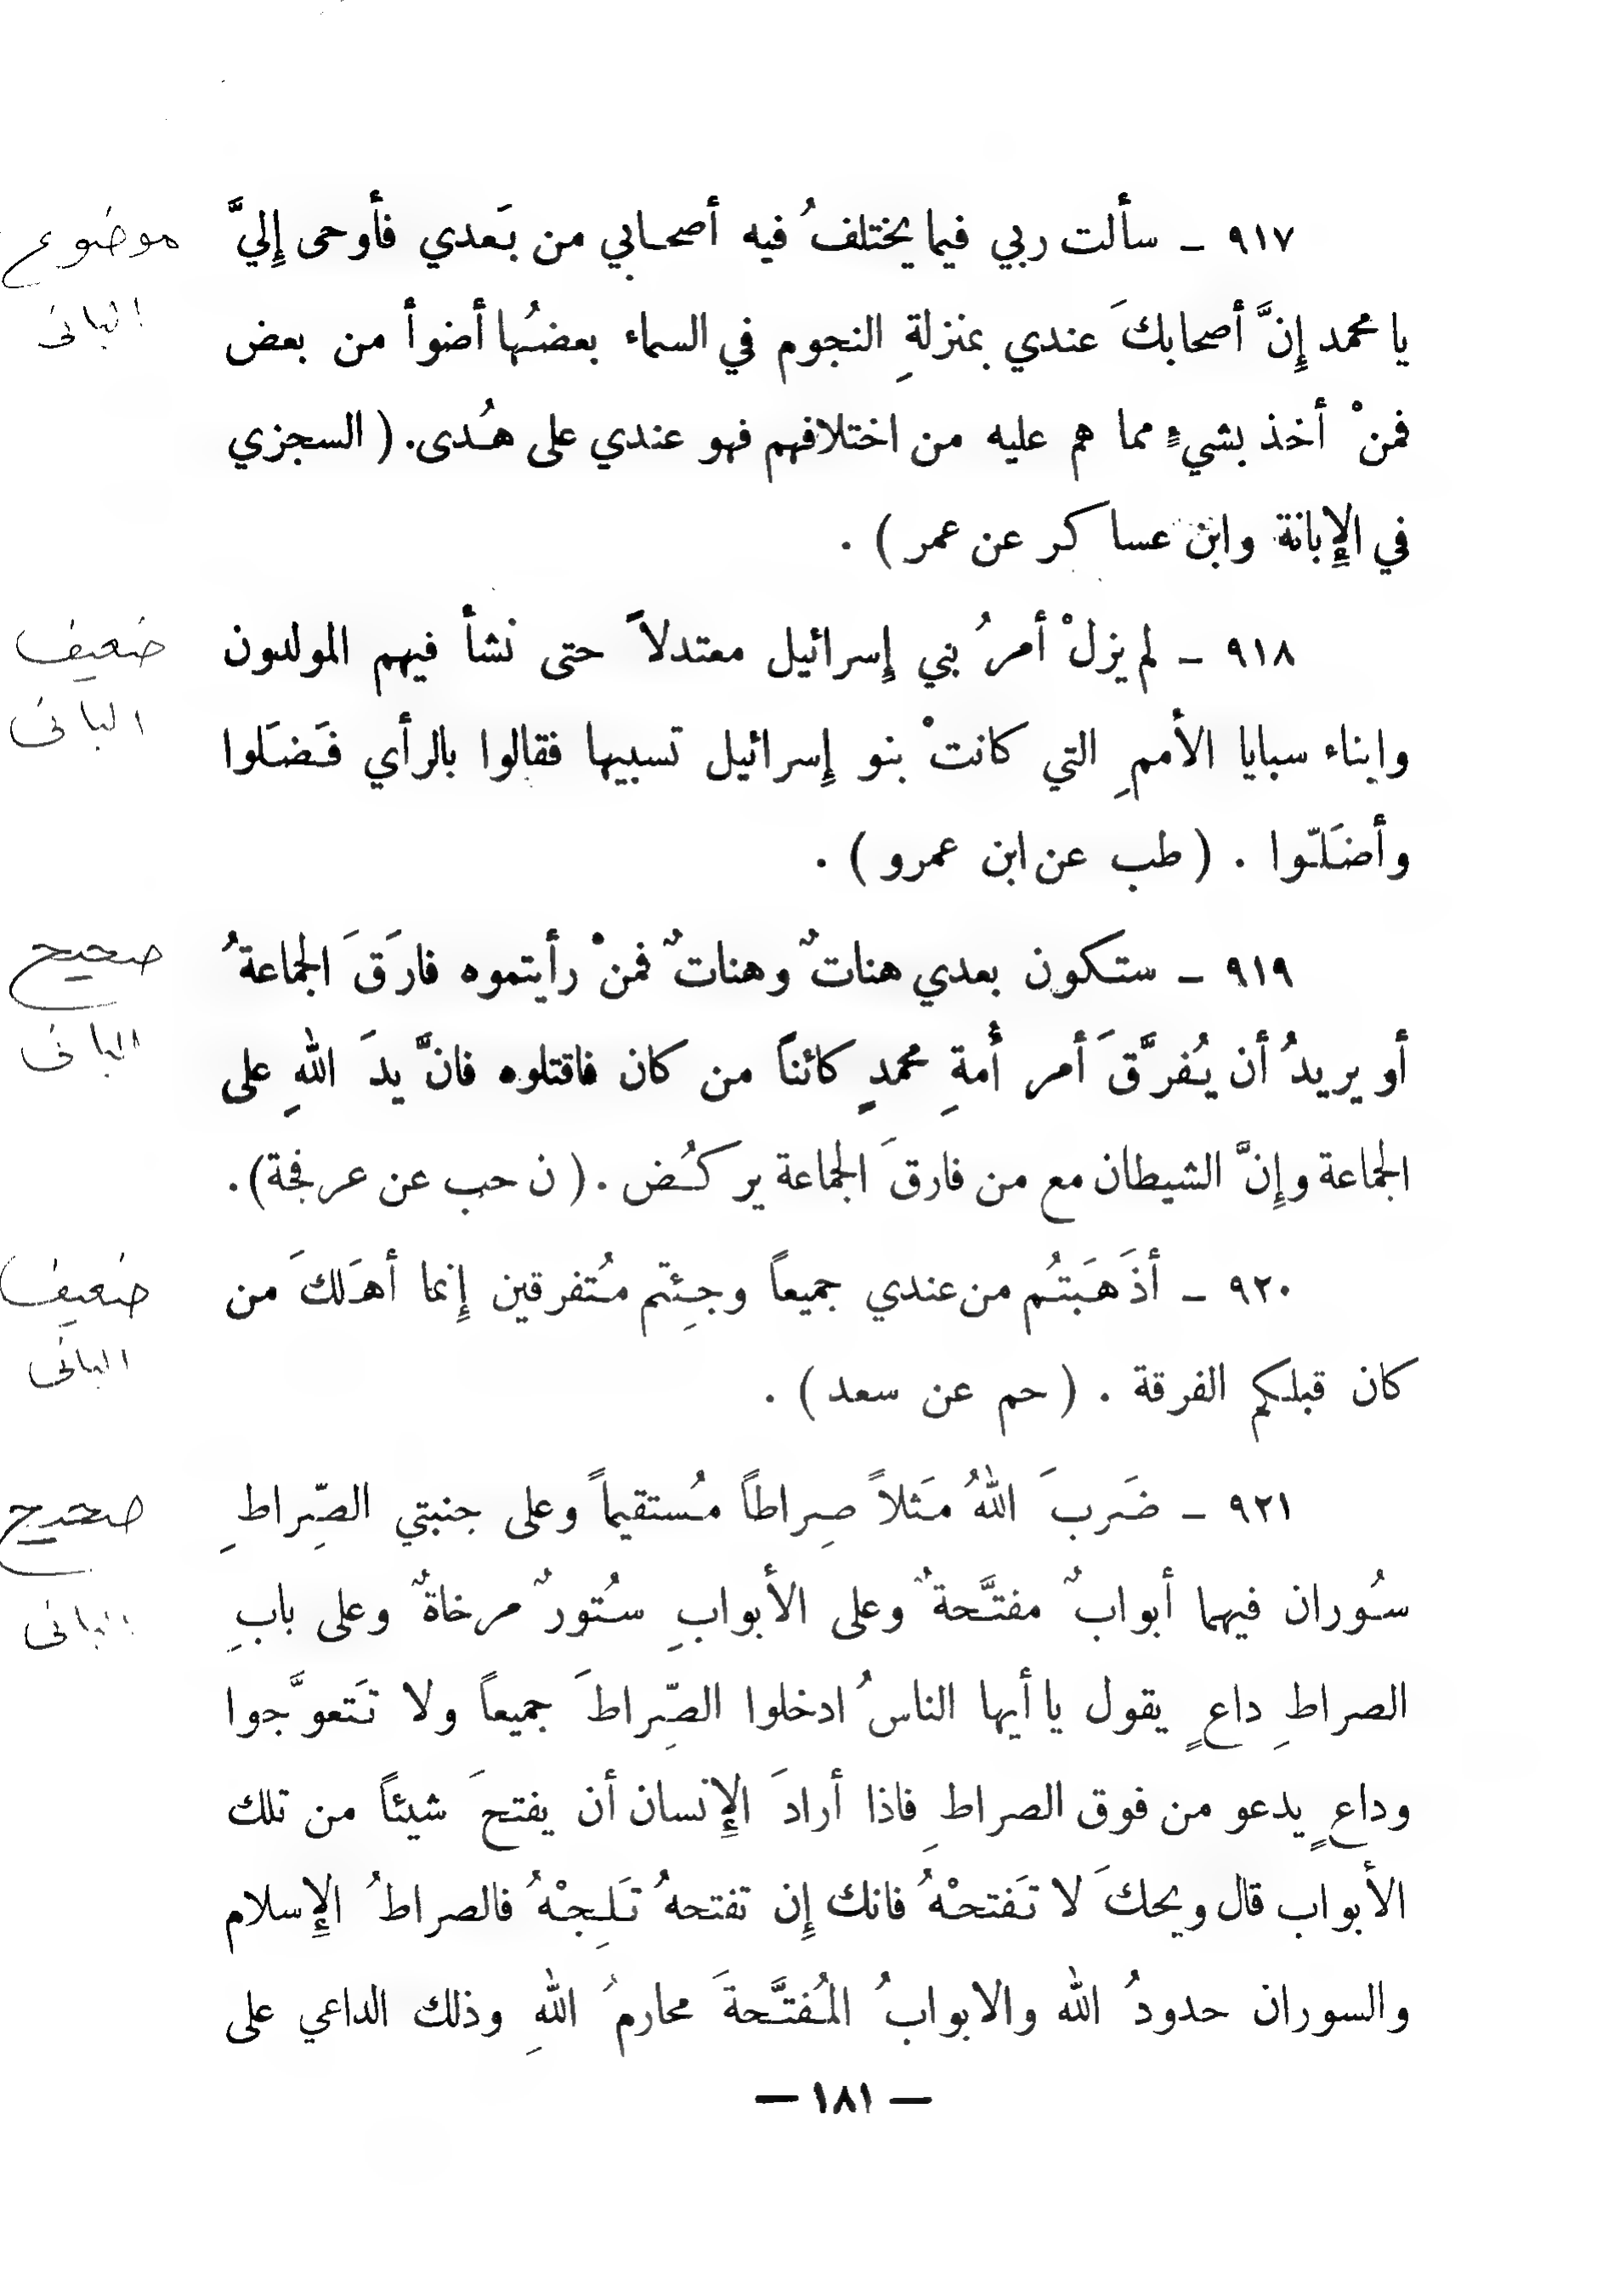 ٩١٧ – سألت ربي فيما يختلفُ فيه أصحابي من بَعدي فأوحى إِليَّ
موضوع
يا محمد إِنَّ أصحابكَ عندي بمنزلةِ النجوم في السماء بعضُها أضوأ من بعض
البانى
فمنْ أخذ بشيءٍ مما هم عليه من اختلافهم فهو عندي على هُدى. ( السجزي
في الإِبانة وابن عساكر عن عمر ) .
٩١٨ – لم يزلْ أمرُ بني إِسرائيل معتدلاً حتى نشأ فيهم المولدون
ضعيف
وابناء سبايا الأممِ التي كانتْ بنو إِسرائيل تسبيها فقالوا بالرأي فَضَلوا
البانى
وأضَلّوا . ( طب عن ابن عمرو ) .
٩١٩ – ستكون بعدي هناتٌ وهناتٌ فمنْ رأيتموه فارَقَ الجماعةُ
صحيح
أو يريدُ أن يُفرَّقَ أمر أُمةِ محمدٍ كائناً من كان فاقتلوه فانَّ يدَ اللهِ على
البانى
الجماعة وإِنَّ الشيطان مع من فارقَ الجماعة يركُض . ( ن حب عن عرفجة ) .
٩٢٠ – أذَهَبتُم من عندي جميعاً وجِئتم مُتفرقين إِنما أهلَكَ من
ضعيف
كان قبلكم الفرقة . ( حم عن سعد ) .
البانى
٩٢١ – ضَربَ اللهُ مَثلاً صِراطاً مُستقيماً وعلى جنبتي الصِّراطِ
صحيح
سُوران فيهما أبوابٌ مفتَّحةٌ وعلى الأبوابِ سُتورٌ مرخاةٌ وعلى بابِ
البانى
الصراطِ داعٍ يقول يا أيها الناسُ ادخلوا الصِّراطَ جميعاً ولا تَتعوَّجوا
وداعٍ يدعو من فوق الصراطِ فاذا أرادَ الإِنسان أن يفتحَ شيئاً من تلك
الأبواب قال ويحكَ لا تَفتحْهُ فانك إِن تفتحهُ تَلِجْهُ فالصراطُ الإِسلام
والسوران حدودُ الله والابوابُ المُفتَّحةَ محارمُ اللهِ وذلك الداعي على
— ١٨١ —